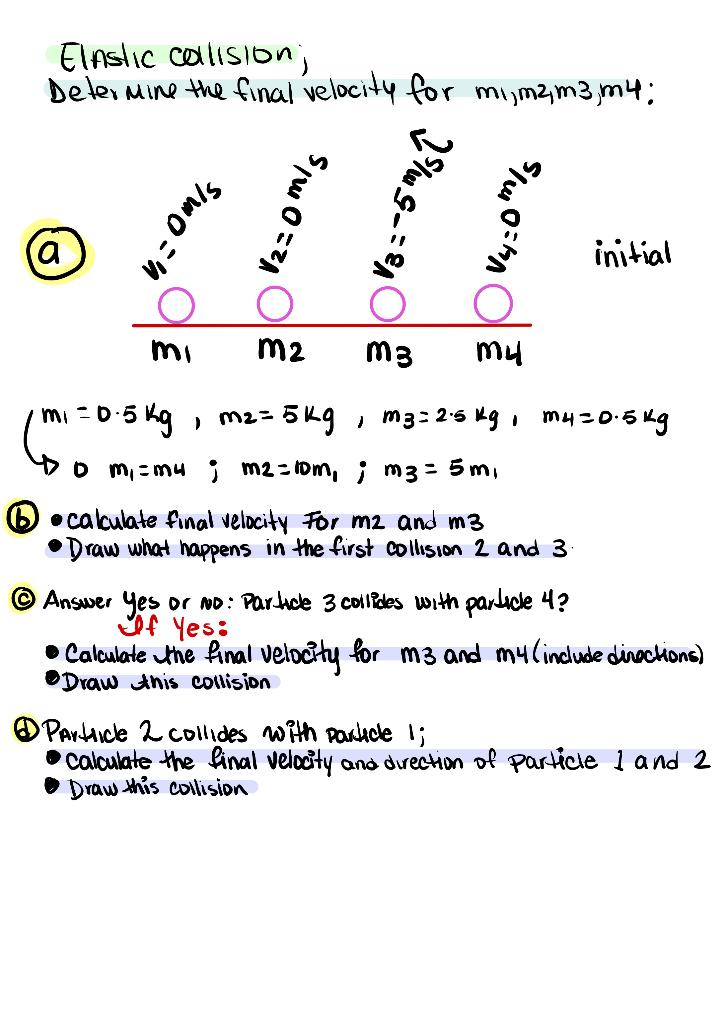 Elastic collision;
Determine the final velocity for m1,m2,m3,m4:
a
v1=0m/s v2=0m/s v3=-5m/s v4=0m/s initial
m1 m2 m3 m4
m1=0.5kg , m2=5kg , m3=2.5kg , m4=0.5kg
m1=m4 ; m2=10m1 ; m3=5m1
b • calculate final velocity For m2 and m3
• Draw what happens in the first collision 2 and 3.
c Answer Yes or No: Particle 3 collides with particle 4?
If Yes:
• Calculate the final velocity for m3 and m4 (include directions)
• Draw this collision
d Particle 2 collides with particle 1;
• Calculate the final velocity and direction of particle 1 and 2
• Draw this collision